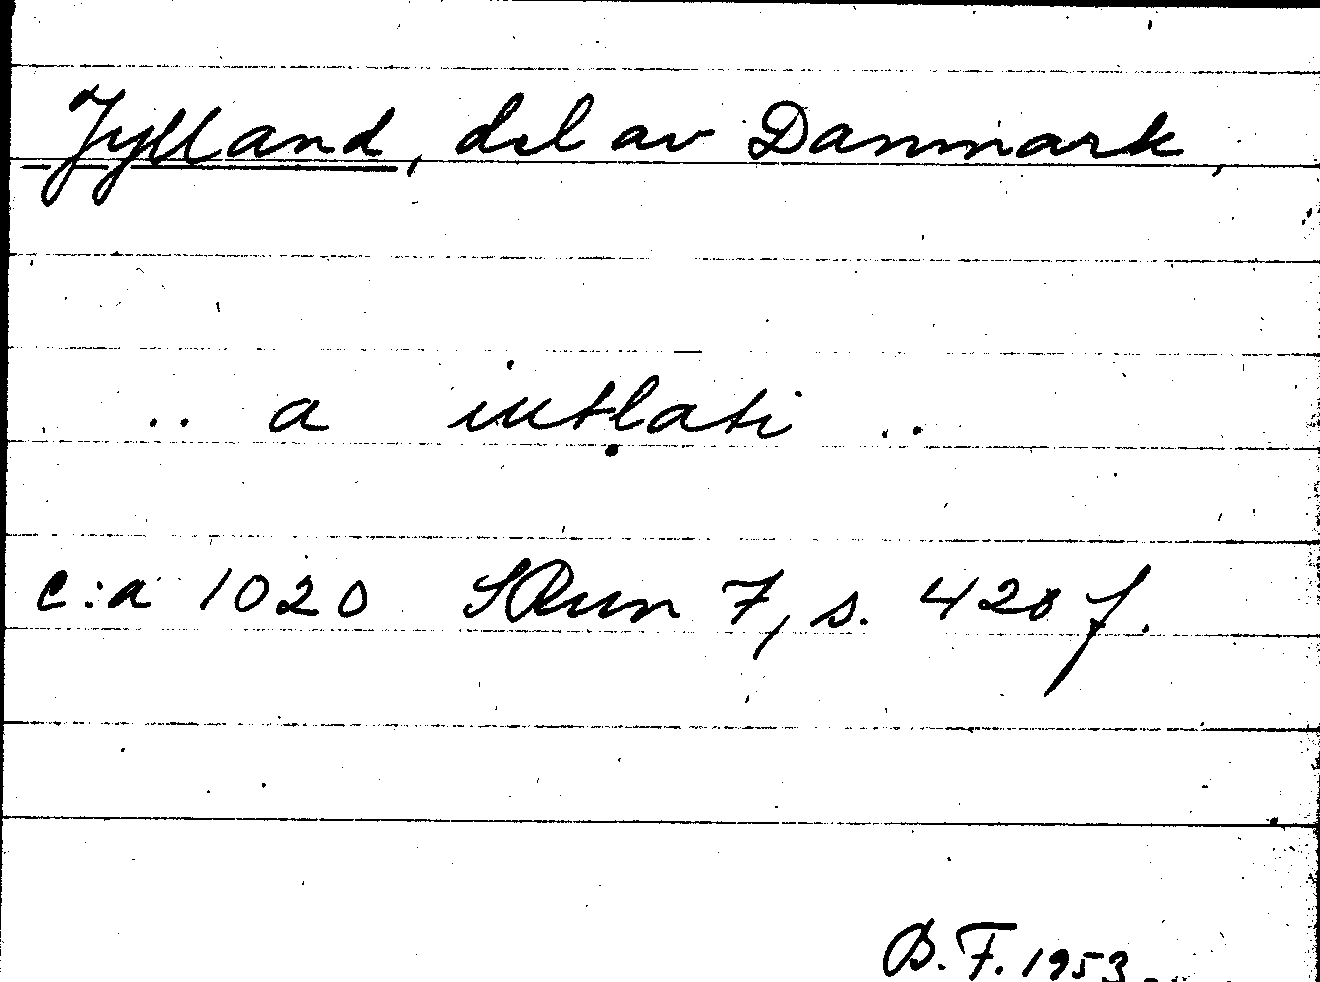 Jylland, del av Danmark,
.. a iutḷati ..
c:a 1020 SRun 7, s. 428 f.
B.F. 1953